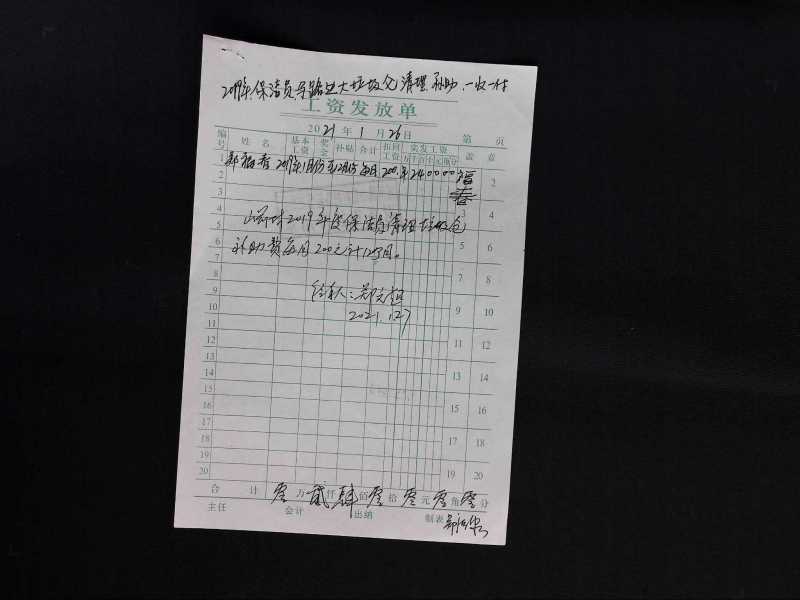 2019年保洁员 大垃圾仓清理补助
工资发放单
2021年1月26日 第 页
编号 姓名 基本工资 奖金 补贴 合计 扣回工资 实发工资 万 千 百 十 元 角 分 盖章
1 郑福春 2019年1月份至12月份每月200元 2400 00 福春 2
2
3 3 4
4 山 村2019年度保洁员清理垃圾仓
5 5 6
6 补助费每月200元计12个月。
7 7 8
8 经办人:郑
9 2021.1.27 9 10
10
11 11 12
12
13 13 14
14
15 15 16
16
17 17 18
18
19 19 20
20
合计 零万贰仟肆佰零拾零元零角零分
主任 会计 出纳 制表 郑